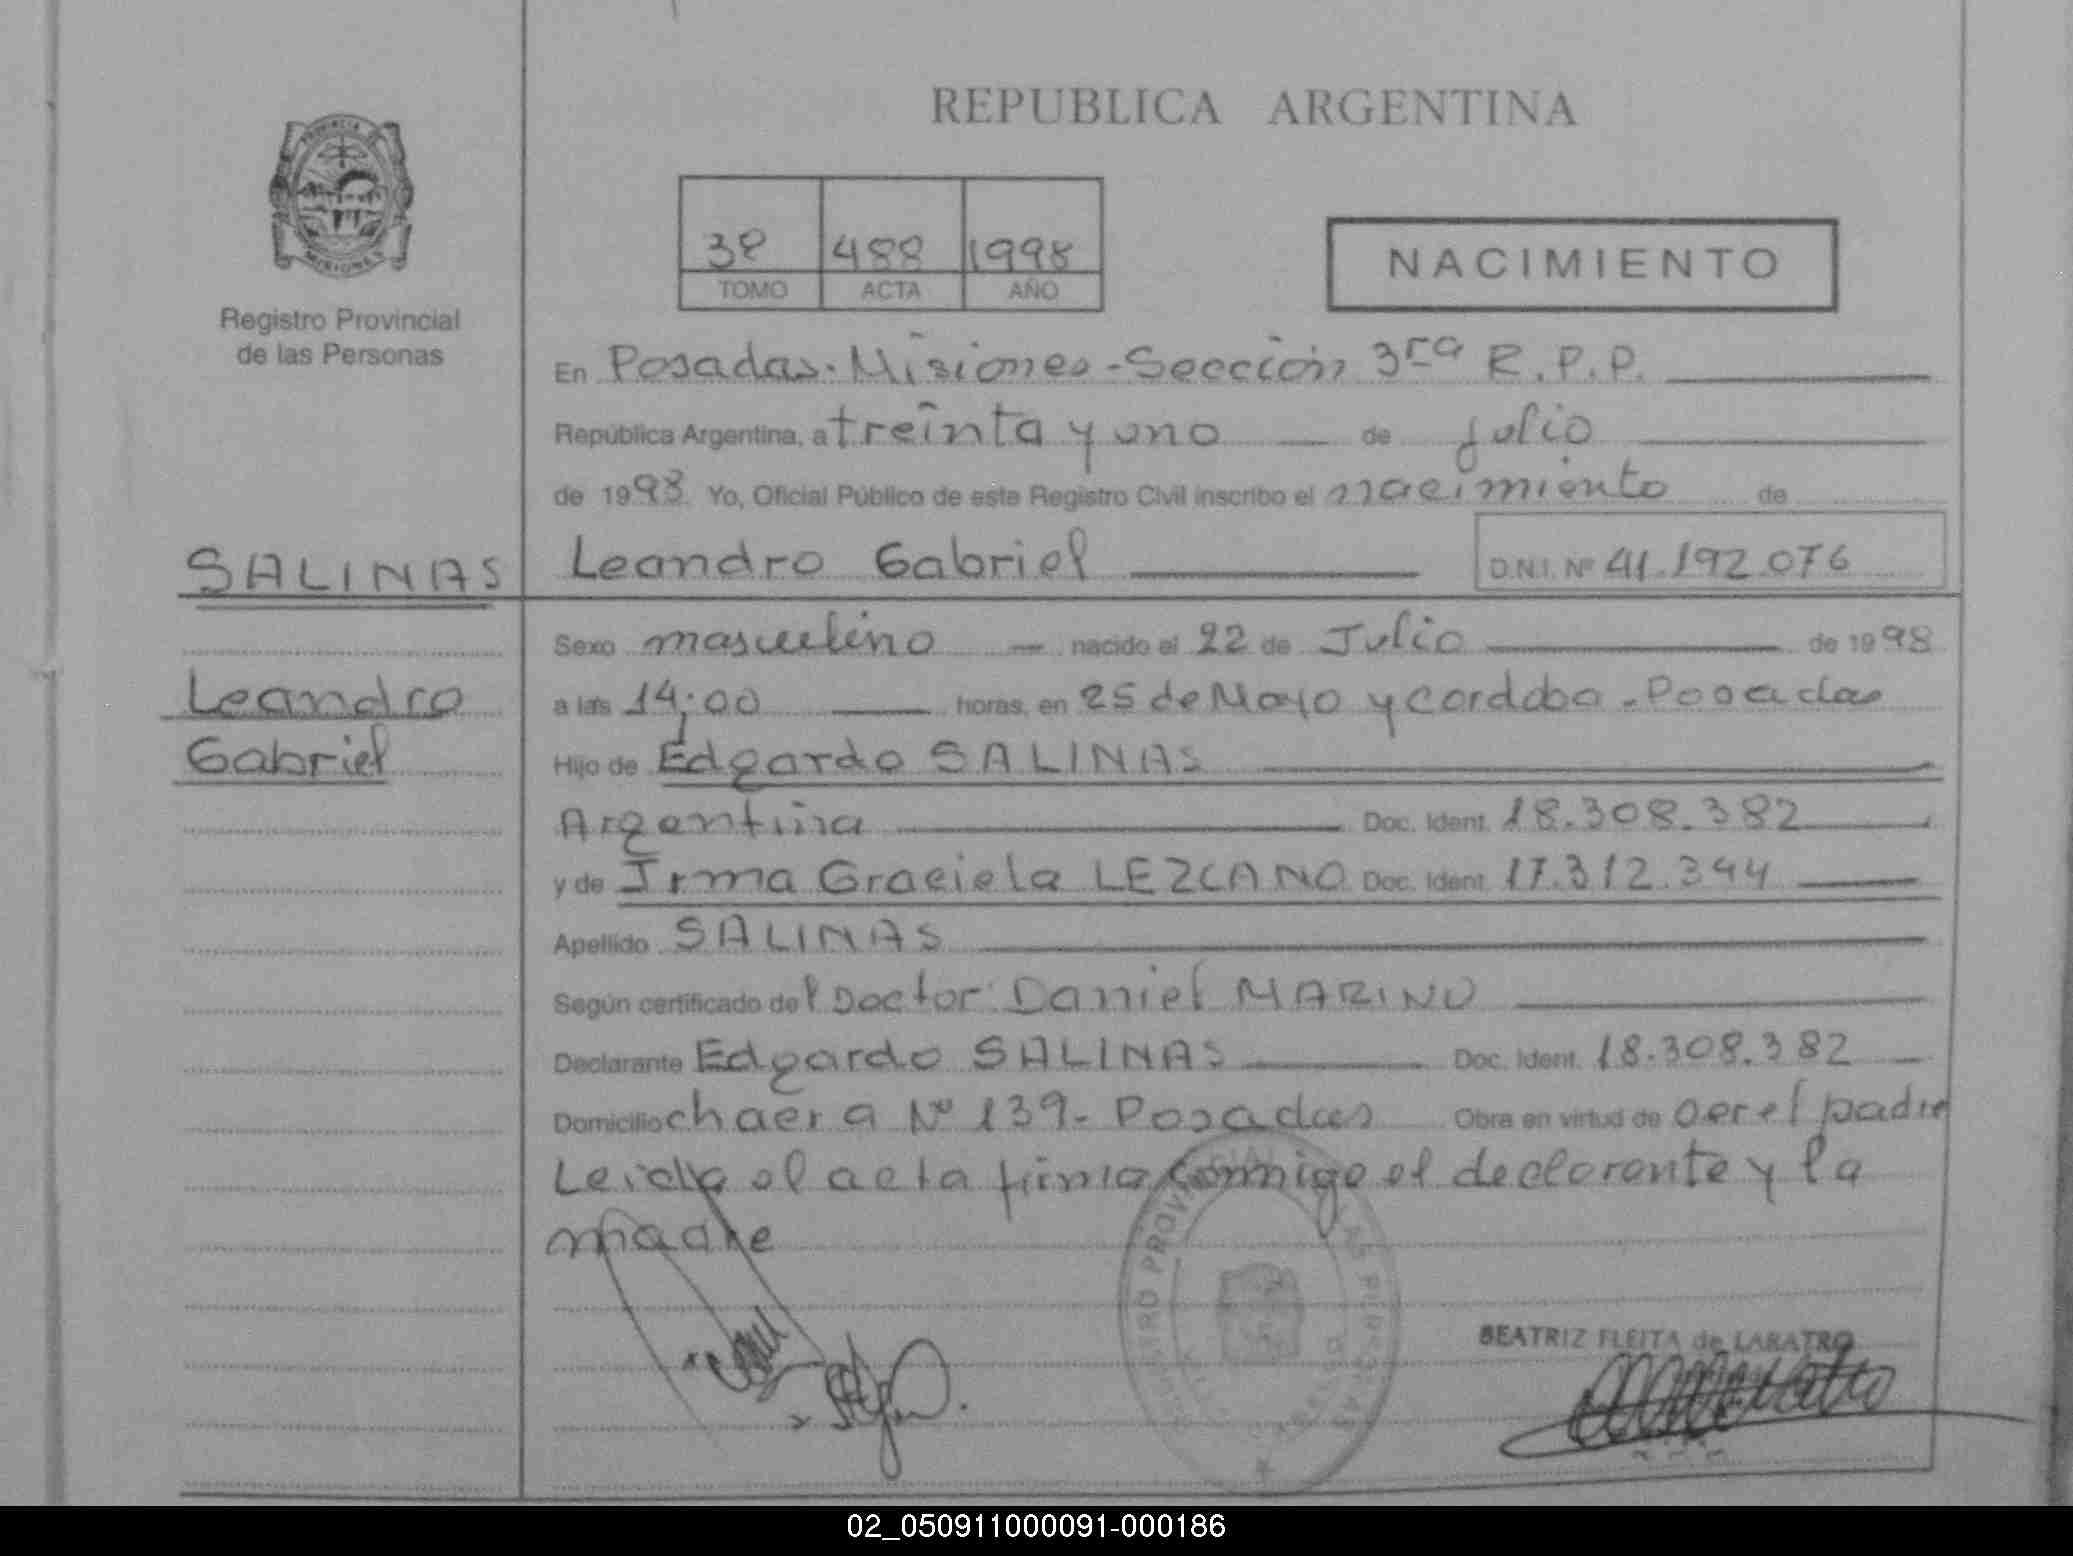 REPUBLICA ARGENTINA
PROVINCIA DE
MISIONES
Registro Provincial
de las Personas
38 488 1998
TOMO ACTA AÑO
NACIMIENTO
En Posadas. Misiones - Sección 3ra R.P.P.
República Argentina, a treinta y uno de julio
de 1998 Yo, Oficial Público de este Registro Civil inscribo el nacimiento de
SALINAS Leandro Gabriel D.N.I. Nº 41.192.076
Sexo masculino nacido el 22 de Julio de 1998
Leandro a las 14:00 horas, en 25 de Mayo y cordoba - Posadas
Gabriel Hijo de Edgardo SALINAS
Argentina Doc. Ident. 18.308.382
y de Irma Graciela LEZCANO Doc. Ident. 17.312.344
Apellido SALINAS
Según certificado del Doctor Daniel MARINO
Declarante Edgardo SALINAS Doc. Ident. 18.308.382
Domicilio chacra Nº 139 - Posadas Obra en virtud de ser el padre
Leida el acta firma conmigo el declarante y la
madre
BEATRIZ FLEITA de LABATRO
02_050911000091-000186